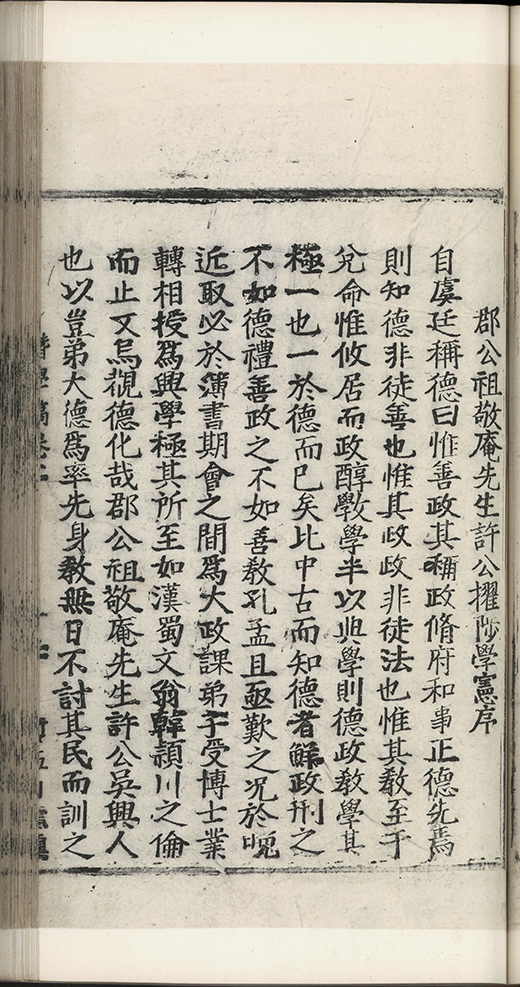 郡公祖敬庵先生許公擢陟學憲序
自虞廷稱德曰惟善政其稱政脩府和事正德先焉
則知德非徒善也惟其政政非徒法也惟其教至于
兌命惟攸居而政醇斆學半以典學則德政教學其
極一也一於德而已矣比中古而知德者鮮政刑之
不如德禮善政之不如善教孔孟且亟歎之况於晚
近取必於薄書期會之間爲大政課弟子受博士業
轉相授爲興學極其所至如漢蜀文翁韓潁川之倫
而止又烏觀德化哉郡公祖敬庵先生許公吳興人
也以豈弟大德爲率先身教無日不討其民而訓之
學稿卷二